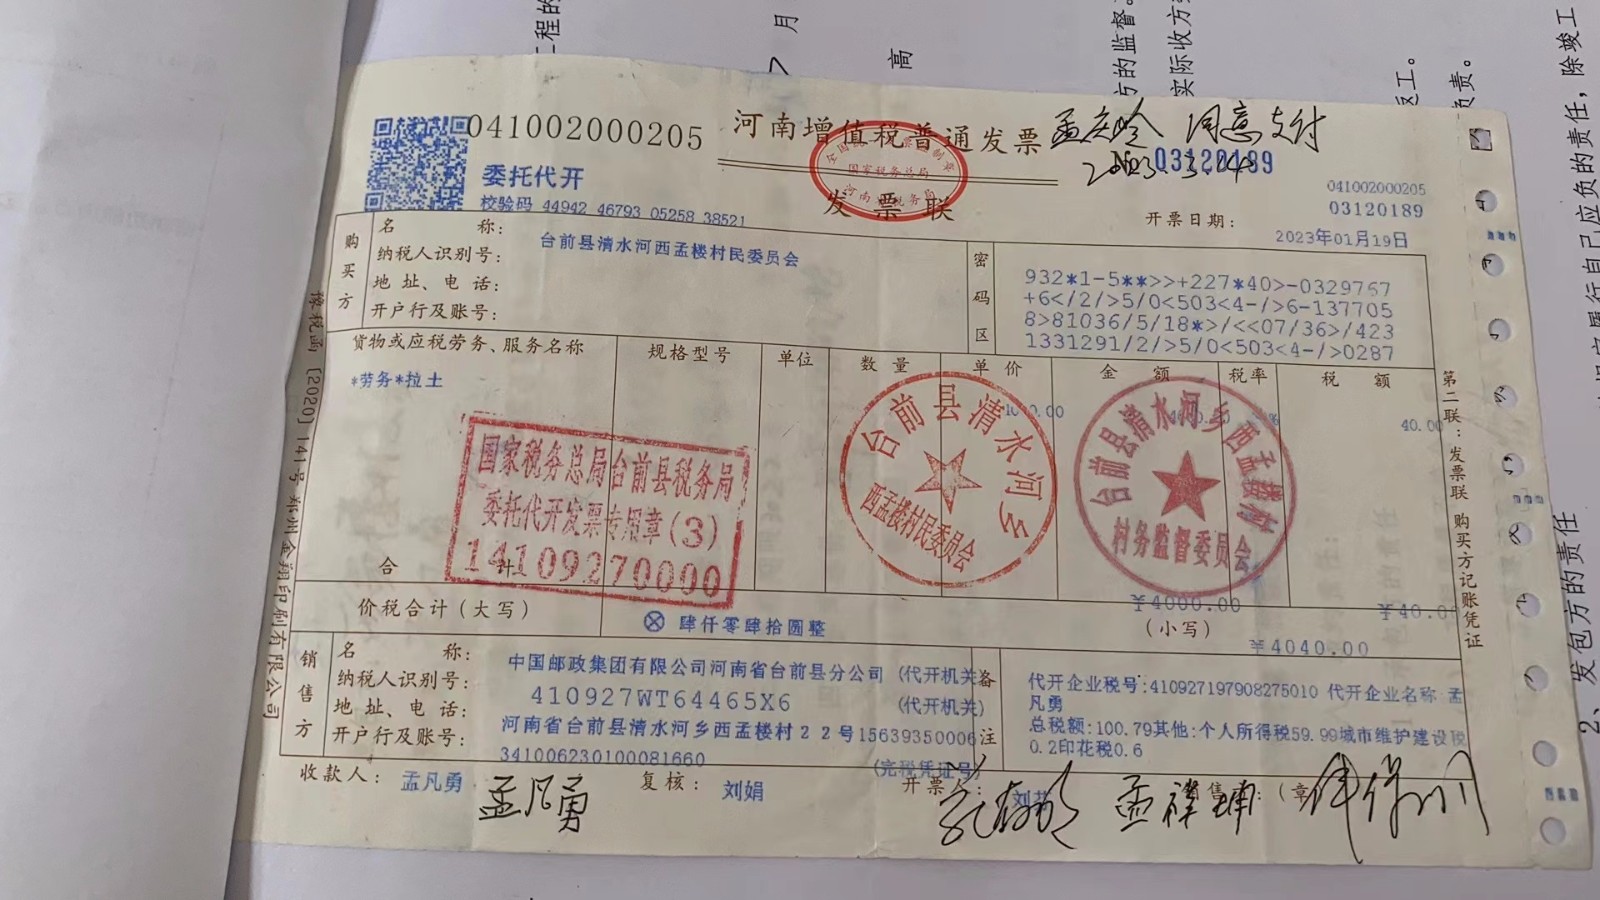 041002000205
河南增值税普通发票
孟庆岭 同意支付
2023.3.4
№03120189
委托代开
校验码 44942 46793 05258 38521
发票联
全国统一发票监制章
国家税务总局
河南省税务局
041002000205
03120189
开票日期:
2023年01月19日
购买方
名 称: 台前县清水河西孟楼村民委员会
纳税人识别号:
地址、电话:
开户行及账号:
密码区
932*1-5**>>+227*40>-0329767
+6</2/>5/0<503<4-/>6-137705
8>81036/5/18*>/<<07/36>/423
1331291/2/>5/0<503<4-/>0287
货物或应税劳务、服务名称 规格型号 单位 数量 单价 金额 税率 税额
*劳务*拉土 40.00
国家税务总局台前县税务局
委托代开发票专用章(3)
14109270000
台前县清水河乡
西孟楼村民委员会
台前县清水河乡西孟楼村
村务监督委员会
合 计 ¥4000.00 ¥40.0
价税合计(大写) ⊗ 肆仟零肆拾圆整 (小写) ¥4040.00
销售方
名 称: 中国邮政集团有限公司河南省台前县分公司 (代开机关
纳税人识别号: 410927WT64465X6 (代开机关)
地址、电话: 河南省台前县清水河乡西孟楼村22号15639350006
开户行及账号: 3410062301000 81660 (完税凭证号)
备注
代开企业税号:410927197908275010 代开企业名称 孟
凡勇
总税额:100.79其他:个人所得税59.99城市维护建设税
0.2印花税0.6
收款人: 孟凡勇 复核: 刘娟 开票人: 售 : (章
孟凡勇
豫税函〔2020〕141号 郑州金翔印刷有限公司
第二联:发票联 购买方记账凭证
工程的
7 月
高
方的监督。
实际收方
返工。
负责。
应负的责任,除竣工
2、发包方的责任